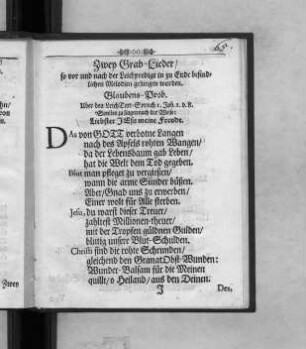 65.
Zwey Grab-Lieder/
so vor und nach der Leichpredigt in zu Ende befind-
lichen Melodien gesungen worden.
Glaubens-Prob.
Uber den Leich-Text-Spruch 1. Joh. 1. v. 8.
Liebster JEsu meine Freude.
DAs von GOTT verbotne Langen
nach des Apfels rohten Wangen/
da der Lebensbaum gab Leben/
hat die Welt dem Tod gegeben.
Blut man pfleget zu vergiessen/
wann die arme Sünder büssen.
Aber/Gnad uns zu erwerben/
Einer wolt für Alle sterben.
Jesu, du warst dieser Treuer/
zahltest Millionen-theuer/
mit der Tropfen güldnen Gulden/
blutig unsere Blut-Schulden.
Christi sind die rohte Schrunden/
gleichend den Granat-Obst-Wunden:
Wunder-Balsam für die Meinen
quillt/o Heiland/aus den Deinen.
J Des.
Zwey